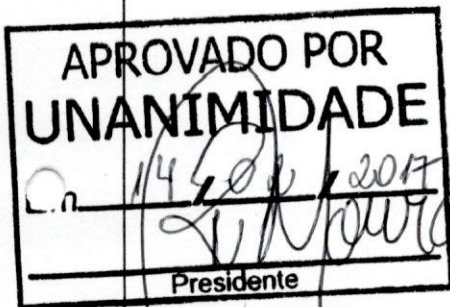 APROVADO POR
UNANIMIDADE
14 / 02 / 2017
Presidente